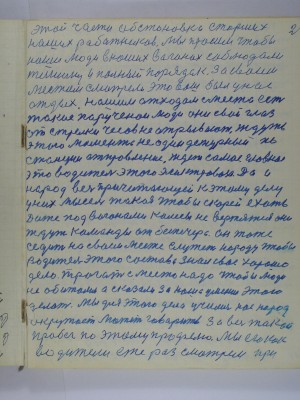 этой части обстановка старших 2
наших работников. Мы просим чтобы
наши люди в наших вагонах соблюдали
тишину и полный порядок. За своим
местам смотрели это ваш был у нас
отдых. Нашим отходом с места ест
такие парученой люди они свой глаз
от стрелки часовке отрывают, ждуть
этого момента не один дежурный по
станции отправление, ждет самое главное
это водитель этого электровоза. Да и
народ вес причитающей к этому делу
у них мысль такая чтобы скорей ехать
Вите под вагонами колесы не вертятся они
ждут команды от бытчера. Он тоже
седит на своем месте слушет народу чтобы
водитель этого состава знал свое хорошо
дело. Трогать с места надо чтоб и люди
не обитали а сказали за наше умения этого
делать. Мы для этого дела учили нас народ
окружает может говарить за вес такой
правы по этому продрема. Мы его как
водители еще раз смотрем при